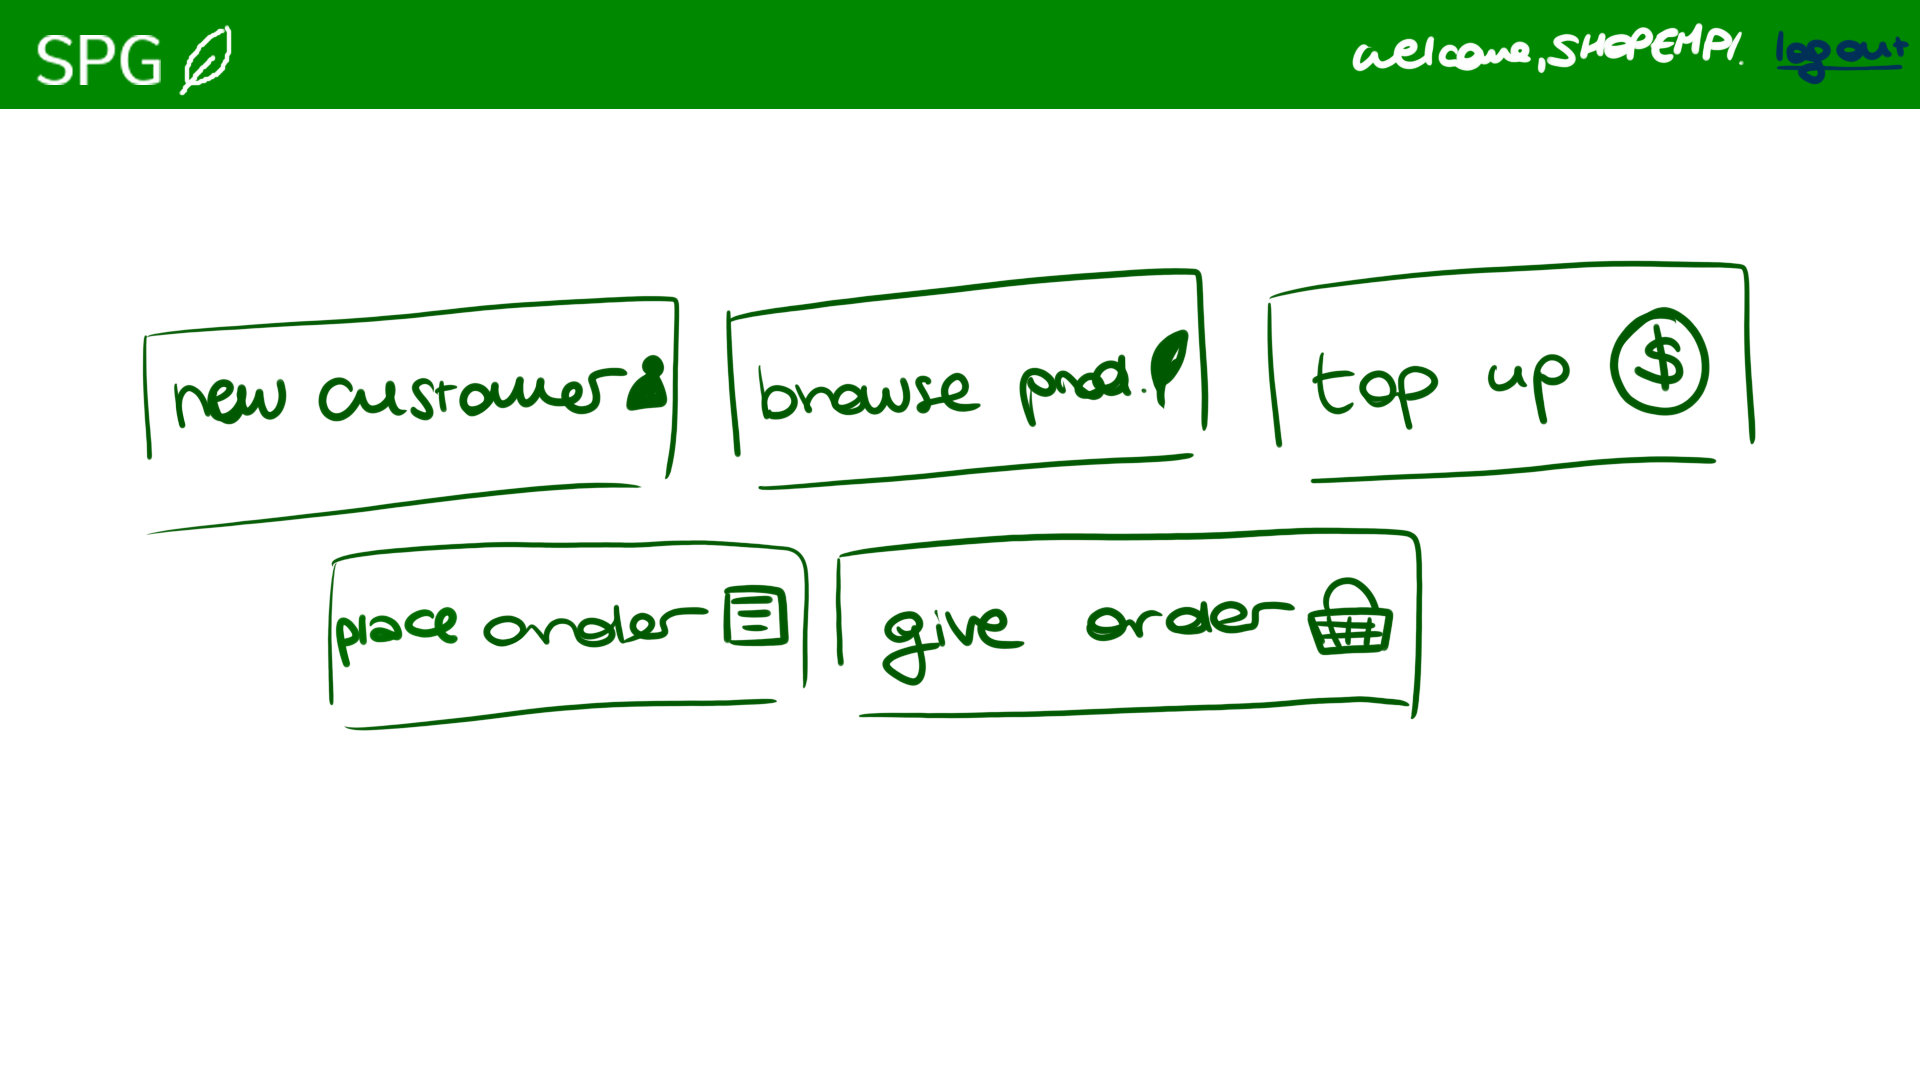 SPG welcome, SHOPEMPL. logout
new customer browse prod. top up $
place order give order